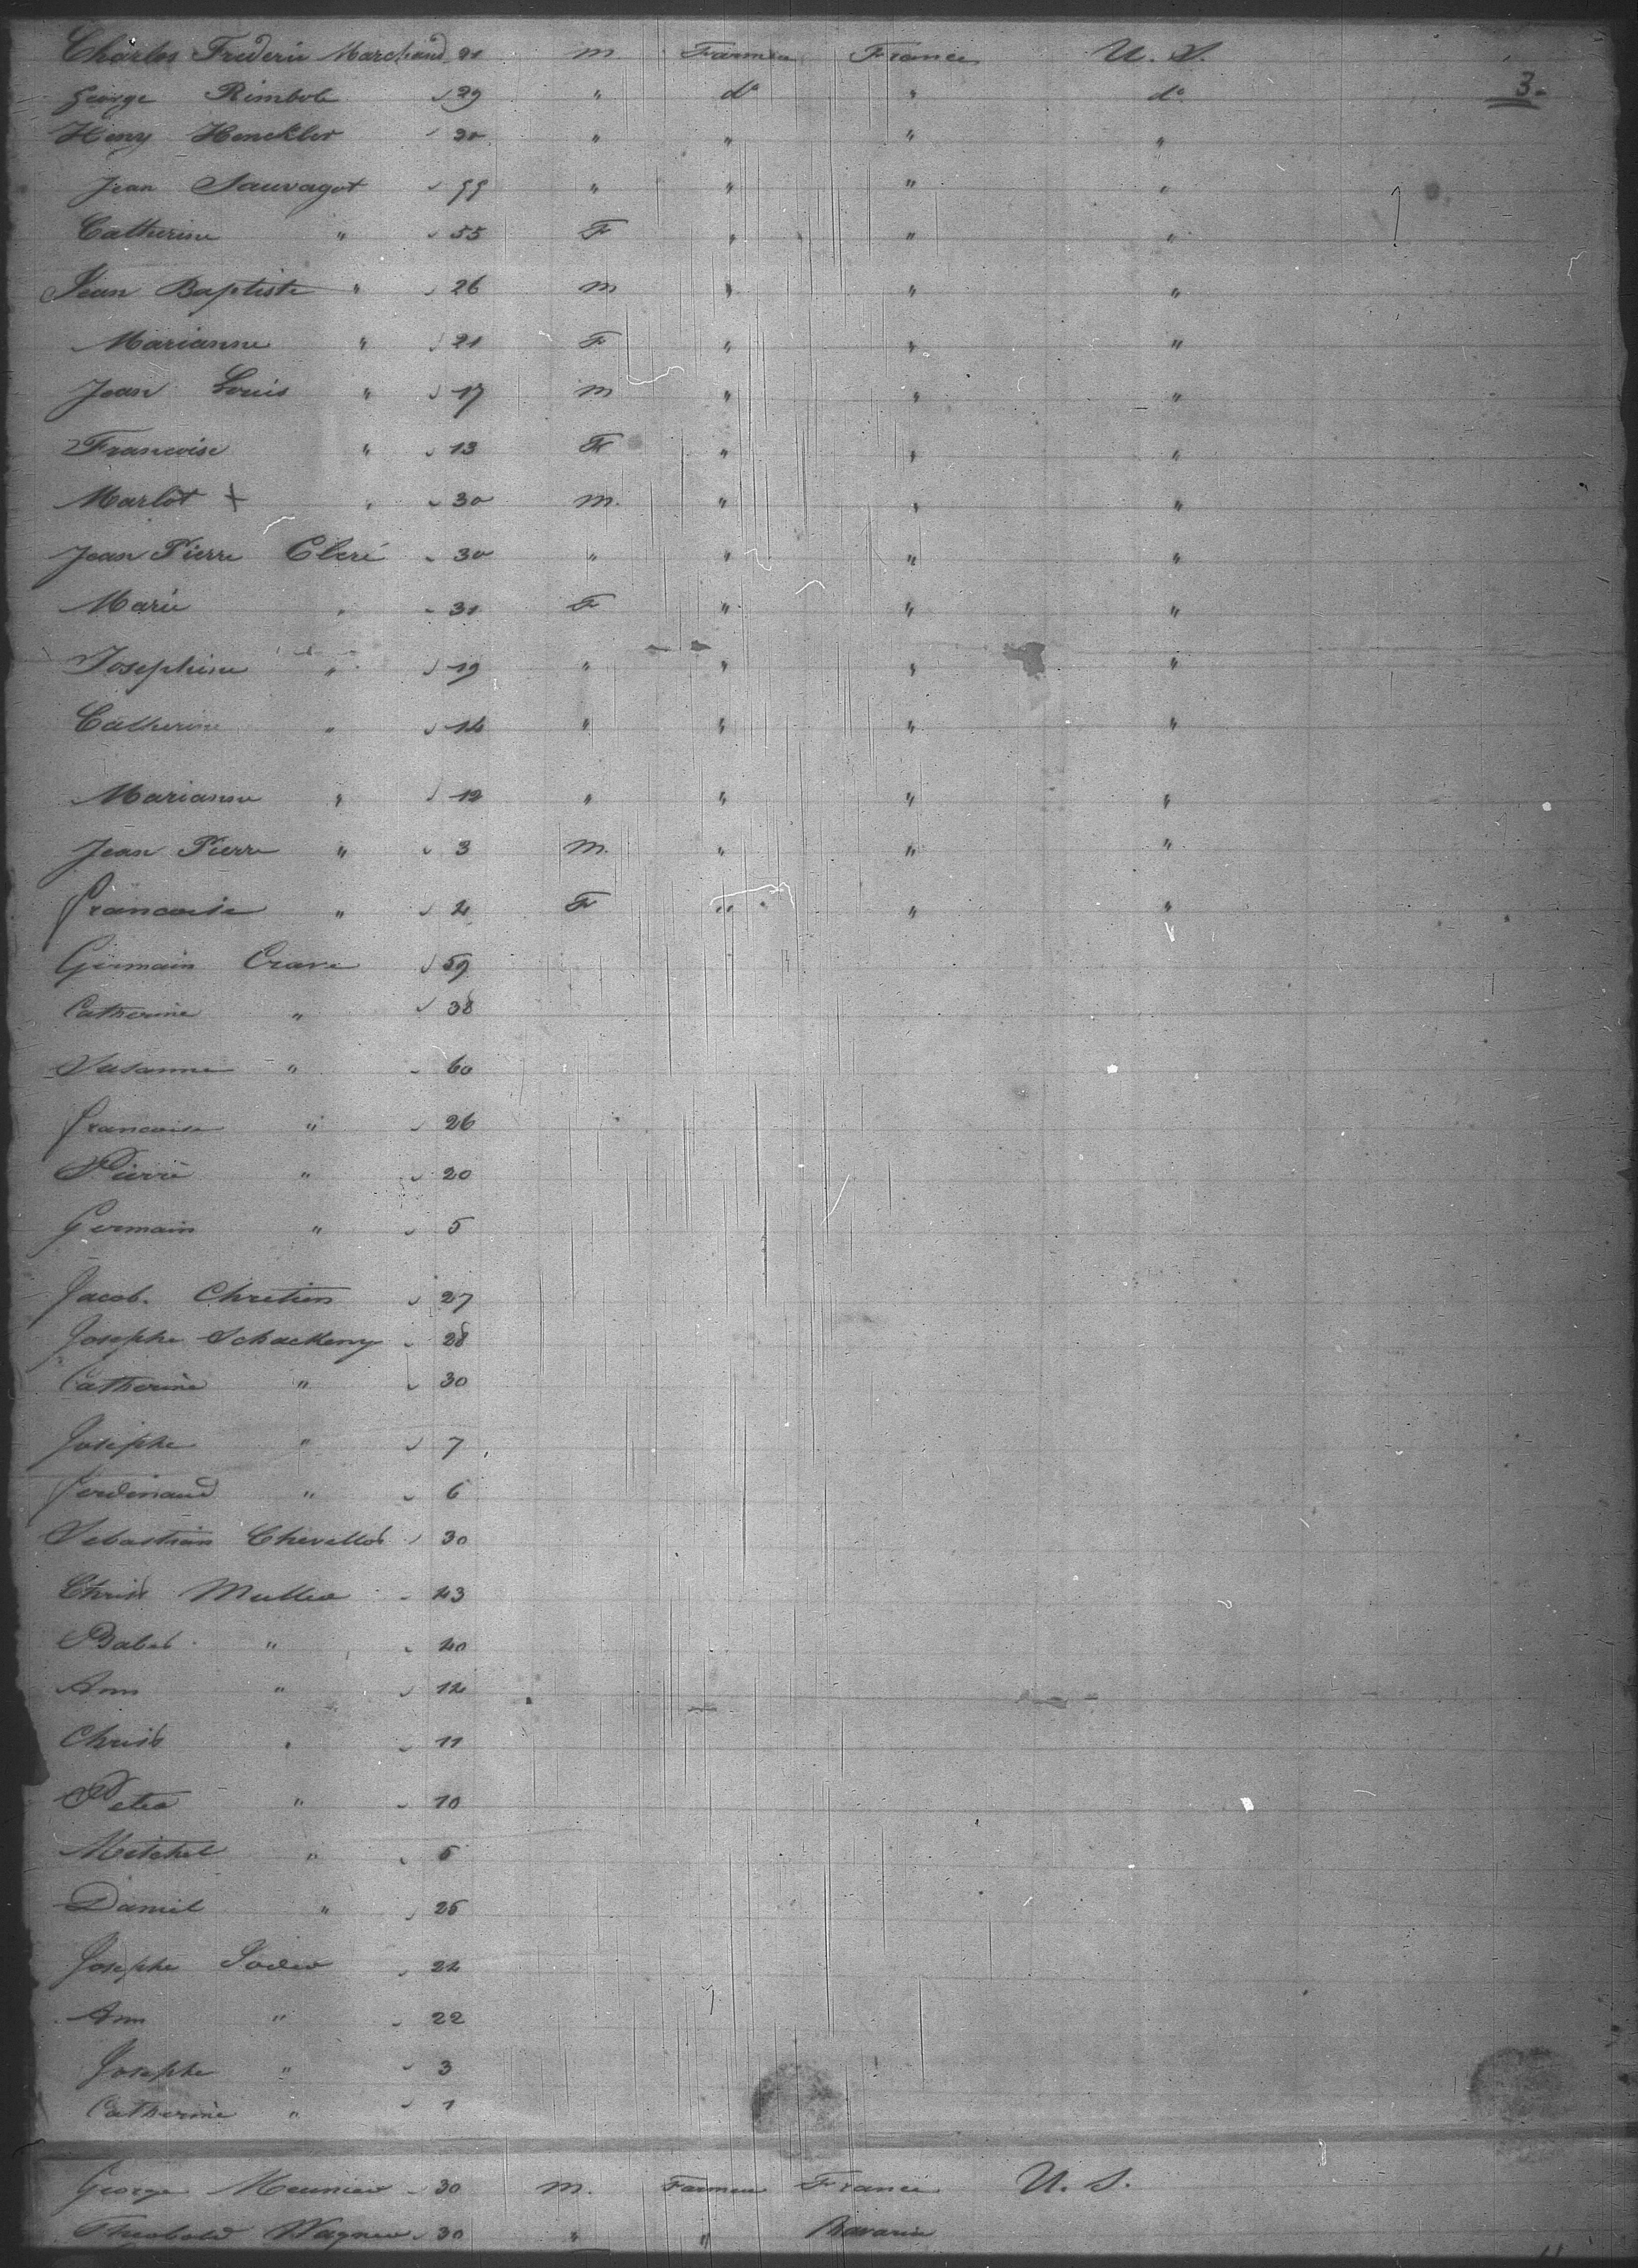 Charles Frederic Marchand 21 m. Farmer France U. S.
3.
George Rimbole 29 " do " do
Heny Henckler 30 " " " "
Jean Sauvaget 55 " " " "
Catherine " 55 F " " "
Jean Baptiste " 26 m " " "
Marianne " 21 F " " "
Jean Louis " 17 m " " "
Francoise " 13 F " " "
Marlot + " 30 m. " " "
Jean Pierre Cleré 30 " " " "
Marie " 31 F " " "
Josephine " 19 " " " "
Catherine " 14 " " " "
Marianne " 12 " " " "
Jean Pierre " 3 m. " " "
Francoise " 2 F " " "
Germain Crave 59
Catherine " 38
Susanne " 60
Francoise " 26
Pierre " 20
Germain " 5
Jacob. Chretien 27
Josephe Schackeny 28
Catherine " 30
Josephe " 7
Ferdinand " 6
Sebastian Chevellot 30
Christ Muller 43
Babet " 40
Ann " 12
Christ " 11
Peter " 10
Mitchel " 5
Daniel " 25
Josephe Soder 24
Ann " 22
Josephe " 3
Catherine " 1
George Meunier 30 m. Farmer France U. S.
Theobald Wagner 30 " " Bavaria